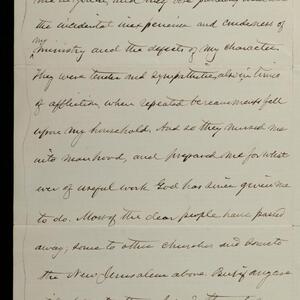 the incidental inexperience and crudeness of
my ministry and the defects of my character.
They were tender and sympathetic, also in times
of affliction, when repeated bereavements fell
upon my household. And so they nursed me
into manhood, and prepared me for what
ever of useful work God has since given me
to do. Most of the dear people have passed
away, some to other churches and some to
the New Jerusalem above. But if any are